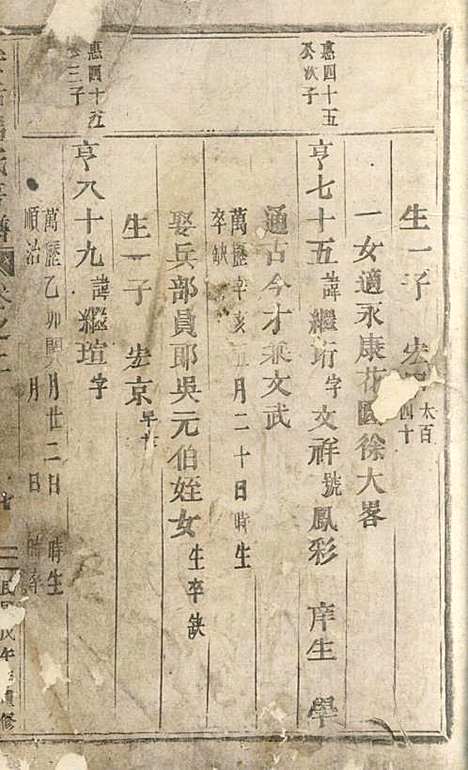 生一子 宏 大百四十
一女適永康花園徐大畧
惠四十五次子
亨七十五諱繼珩字文祥號鳳彩 庠生 學
通古今才兼文武
萬歷辛亥 月二十日時生
卒缺
娶兵部員耶吳元伯姪女生卒缺
生一子 宏京早
惠四十五 三子
亨八十九諱繼瑄字
萬歷乙卯閏 月廿二日 時生
順治 月 日 時卒
卷之
民國戊午 續修